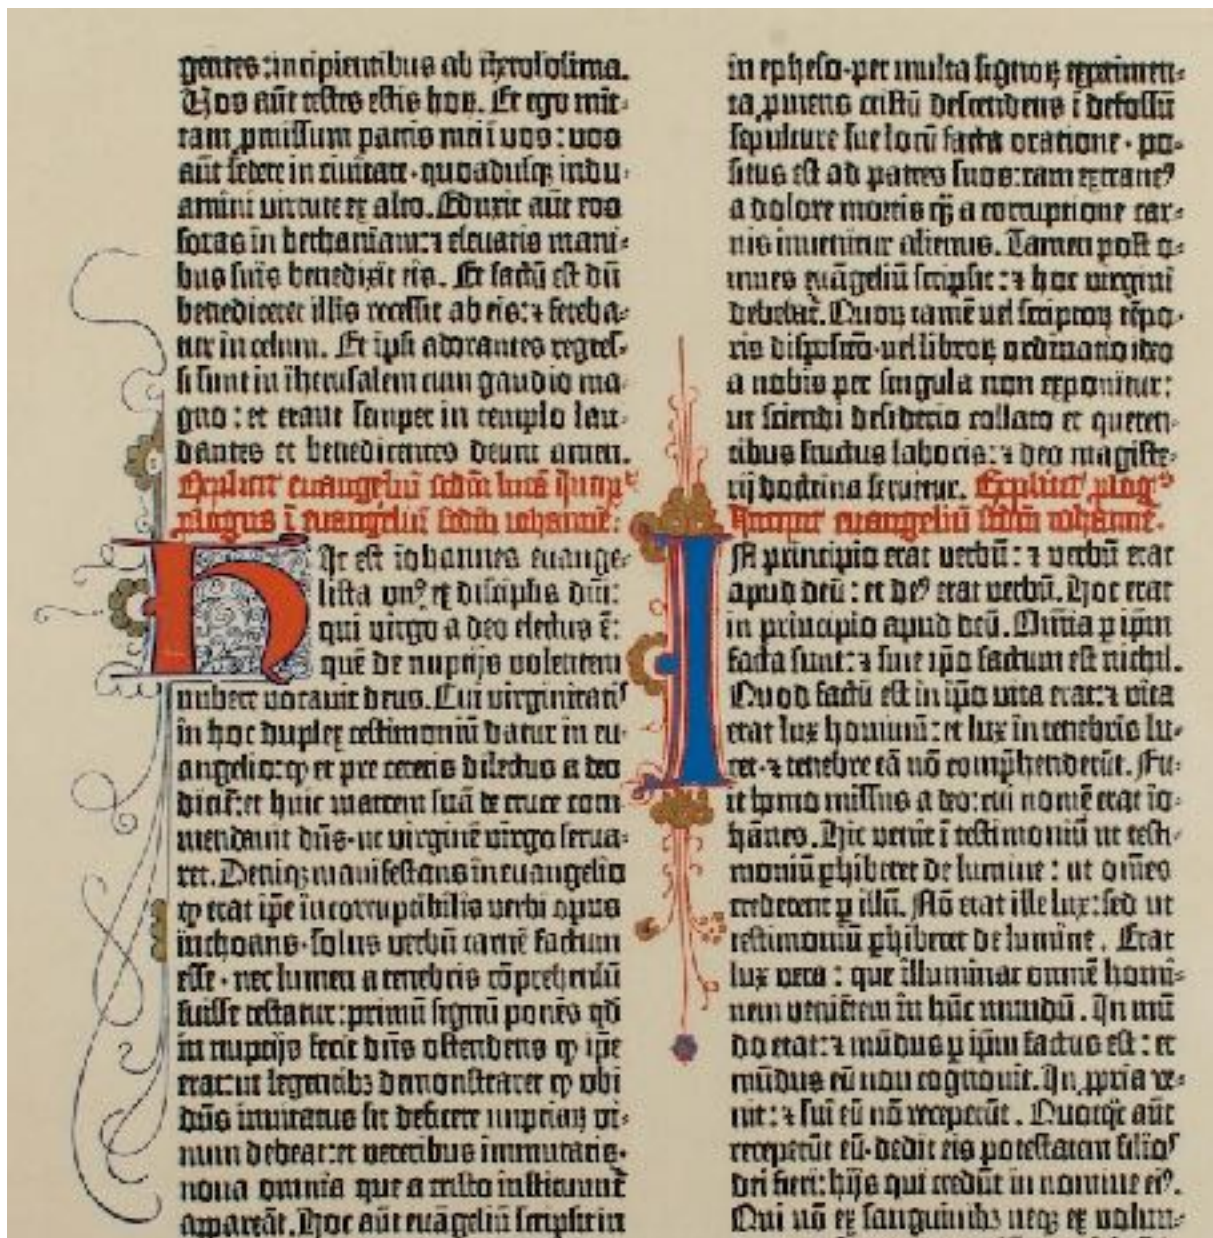 gentes : incipientibus ab iherosolima.
Vos aūt testes estis hoꝝ. Et ego mit-
tam ꝓmissum patris mei ī vos : vos
aūt sedete in civitate · quoadusqꝫ indu-
amini virtute ex alto. Eduxit aūt eos
foras in bethaniam : ⁊ elevatis mani-
bus suis benedixit eis. Et factū est dū
benediceret illis recessit ab eis : ⁊ fereba-
tur in celum. Et ipsi adorantes regres-
si sunt in iherusalem cum gaudio ma-
gno : et erant semper in templo lau-
dantes et benedicentes deum amen.
Explicit euangeliū scdm lucā Incip̄
ꝓlogus ī euangeliū scdm iohannē:
Hic est iohannes euange-
lista unꝰ ex discipl̄is dn̄i:
qui virgo a deo electus ē:
quē de nuptijs volentem
nubere vocavit deus. Cui virginitatis
in hoc duplex testimoniū datur in eu-
angelio : ꝙ et pre ceteris dilectus a deo
dicit̄ : et huic matrem suā de cruce com
mendavit dn̄s · ut virginē virgo serva-
ret. Deniqꝫ manifestans in euangelio
ꝙ erat ip̄e incorruptibilis verbi opus
inchoans · solus verbū carnē factum
esse · nec lumen a tenebris cōprehensū
fuisse testatur : primū signū ponēs qd̄
in nuptijs fecit dn̄s ostendens ꝙ ip̄e
erat : ut legentibꝫ demonstraret ꝙ ubi
dn̄s invitatus sit deficere nuptiaꝝ vi-
num debeat : et veteribus immutatis ·
nova omnia que a cristo instituunt̄
appareāt. Hoc aūt euāgeliū scripsit in
in epheso · per multa signoꝝ experimen-
ta ꝓmens cristū descendens ī defossū
sepulture sue locū facta oratione · po-
situs est ad patres suos : tam extraneꝰ
a dolore mortis qꝫ a corruptione car-
nis invenitur alienus. Tamen post o-
mnes euāgeliū scripsit : ⁊ hoc virgini
debebat̄. Quoꝝ tamē vel scriptoꝝ tēpo-
ris dispositō · vel libroꝝ ordinatio ideo
a nobis per singula non exponitur :
ut sciendi desiderio collato et queren-
tibus fructus laboris : ⁊ deo magiste-
rij doctrina servetur. Explicit ꝓlogꝰ
Incipit euangeliū scdm iohannē.
In principio erat verbū : ⁊ verbū erat
apud deū : et deꝰ erat verbū. Hoc erat
in principio apud deū. Om̄ia ꝑ ip̄m
facta sunt : ⁊ sine ip̄o factum est nichil.
Quod factū est in ip̄o vita erat : ⁊ vita
erat lux hominū : et lux in tenebris lu-
cet · ⁊ tenebre eā nō comp̄henderūt. Fu-
it homo missus a deo : cui nomē erat io-
hānes. Hic venit ī testimoniū ut testi-
moniū ꝑhiberet de lumine : ut om̄es
crederent ꝑ illū. Nō erat ille lux : sed ut
testimoniū ꝑhiberet de lumine. Erat
lux vera : que illuminat omnē homi-
nem venientem in hūc mundū. In mū
do erat : ⁊ mūdus ꝑ ip̄m factus est : et
mūdus eū non cognovit. In ꝓpria ve-
nit : ⁊ sui eū nō receperūt. Quotqͦt aūt
receperūt eū · dedit eis potestatem filios
dei fieri : hijs qui credūt in nomine eiꝰ.
Qui nō ex sanguinibꝫ neqꝫ ex volun-